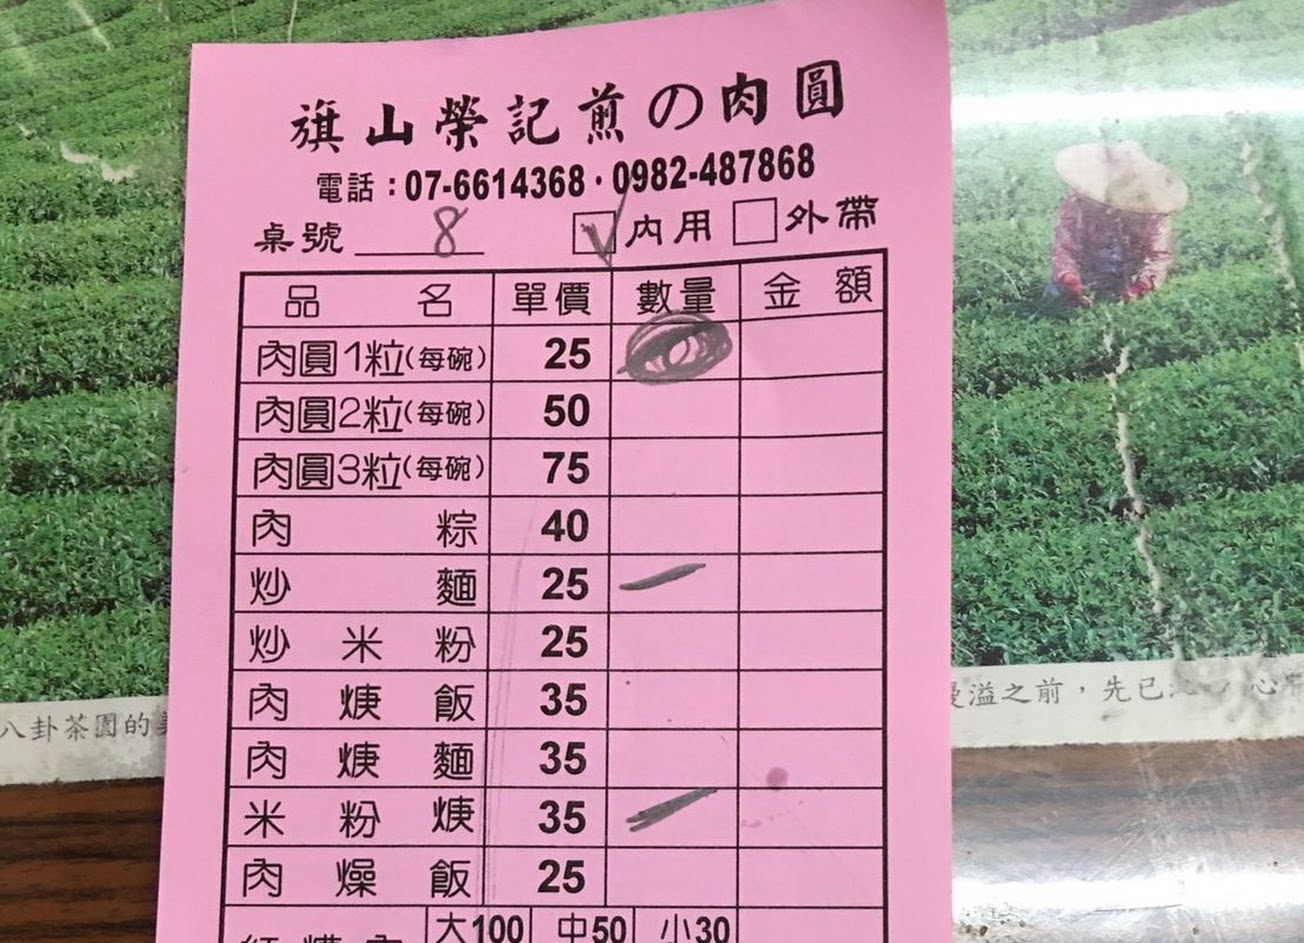 旗山榮記煎の肉圓
電話：07-6614368·0982-487868
桌號 8 內用 外帶
品名 單價 數量 金額
肉圓1粒(每碗) 25
肉圓2粒(每碗) 50
肉圓3粒(每碗) 75
肉粽 40
炒麵 25 一
炒米粉 25
肉焿飯 35
肉焿麵 35
米粉焿 35 一
肉燥飯 25
大100 中50 小30
八卦茶園的
溢之前，先已 心